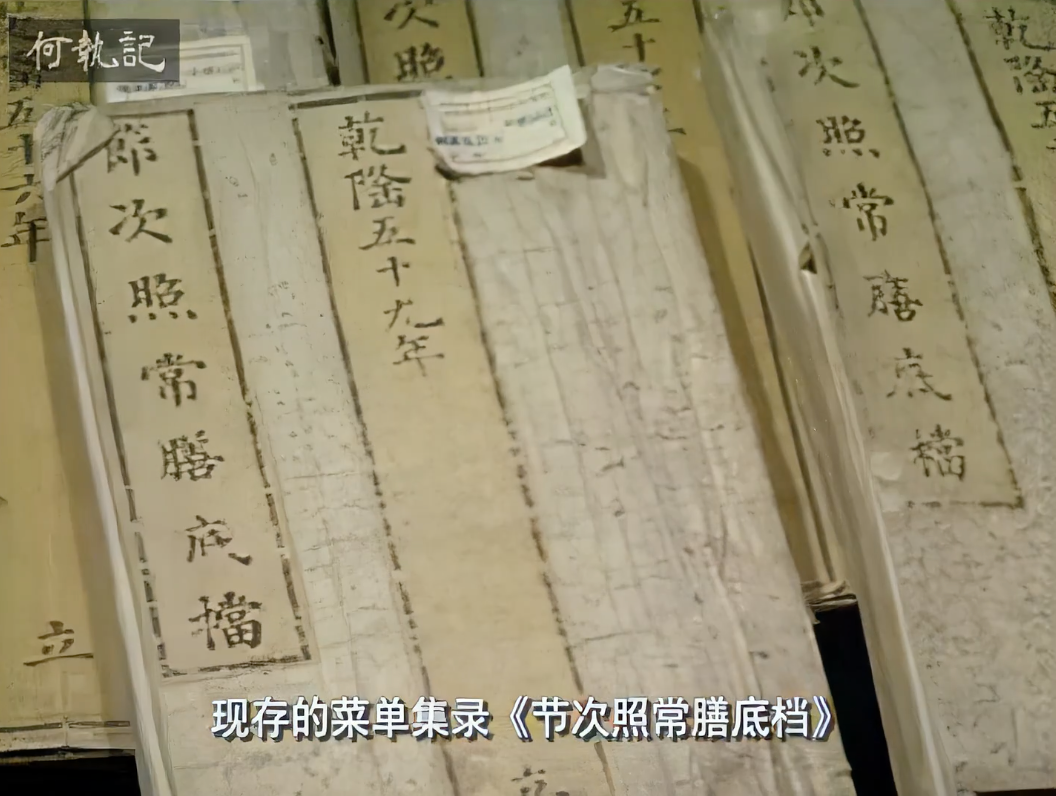 何執記
節次照常膳底檔
乾隆五十九年
次照
五十
節次照常膳底檔
乾隆五
五十六年
立
现存的菜单集录《节次照常膳底档》